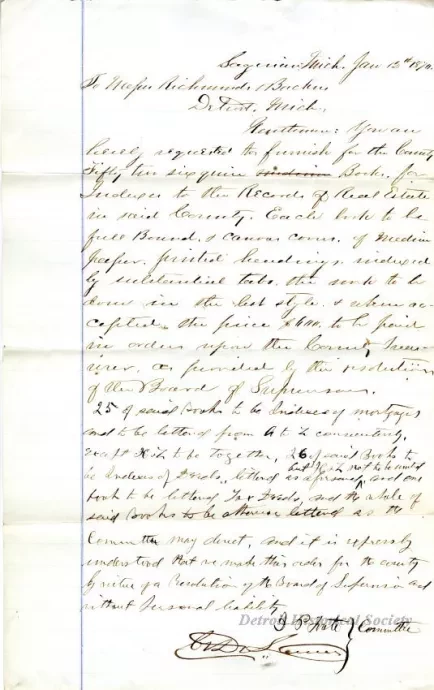 Mich. Jan 12th 187
To Messrs Richmond & Backus
Detroit, Mich.
Gentlemen: You are
hereby requested to furnish for the County
Fifty two six quire Books for
Indexes to the Records of Real Estate
in said County. Each book to be
full Bound, & canvas cover, of medium
paper, printed headings, indexed
by substantial tabs, the work to be
done in the best style & when ac-
cepted, the price $600. to be paid
in orders upon the County Treas-
urer, as provided by the resolution
of the Board of Supervisors.
25 of said Books to be Indices of mortgages
and to be lettered from A to Z consecutively,
except to be together, 26 of said Books to
but not to be united
be Indices of Deeds, lettered as aforesaid, and one
book to be lettered Tax Deeds, and the whole of
said Books to be otherwise lettered as the
Committee may direct, and it is expressly
understood that we make this order for the county
by virtue of a Resolution of the Board of Supervisors and
without personal liability
Detroit Historical Society
Committee